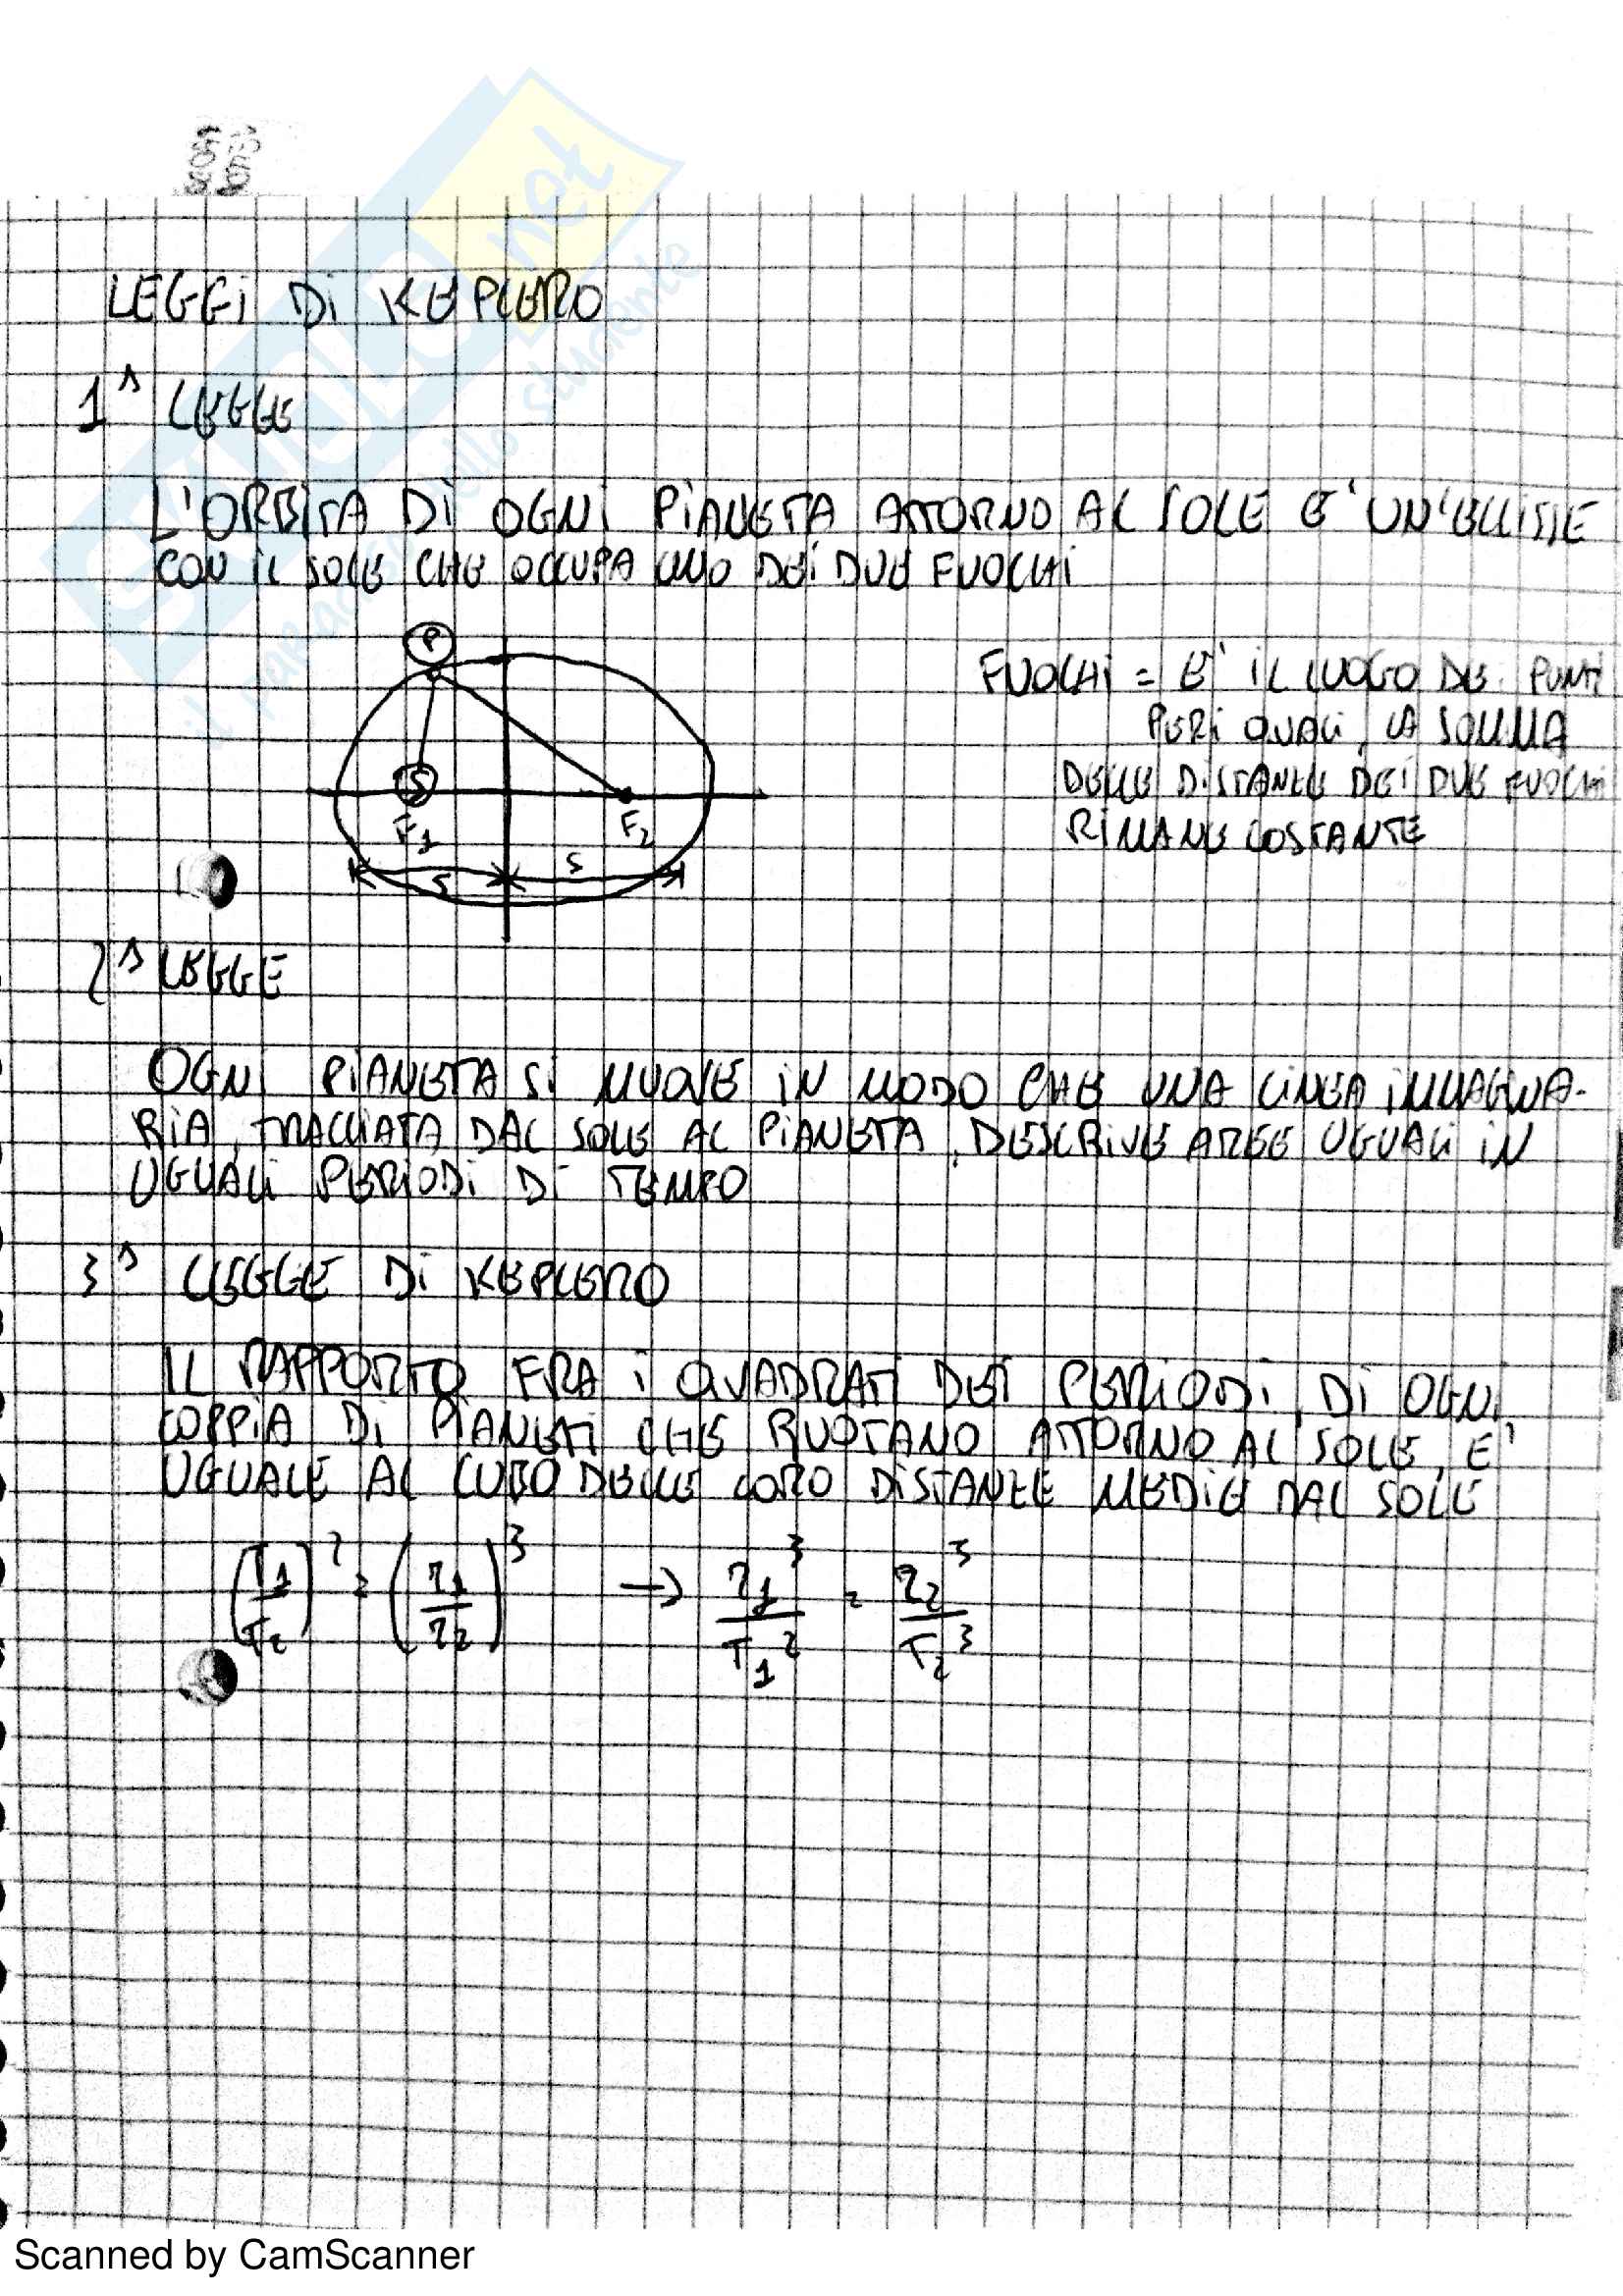 LEGGI DI KEPLERO
1^ LEGGE
L'ORBITA DI OGNI PIANETA ATTORNO AL SOLE E' UN'ELLISSE
CON IL SOLE CHE OCCUPA UNO DEI DUE FUOCHI
P
S
F1 F2
s s
FUOCHI = E' IL LUOGO DEI PUNTI
PER I QUALI, LA SOMMA
DELLE DISTANZE DEI DUE FUOCHI
RIMANE COSTANTE
2^ LEGGE
OGNI PIANETA SI MUOVE IN MODO CHE UNA LINEA IMMAGINA-
RIA, TRACCIATA DAL SOLE AL PIANETA, DESCRIVE AREE UGUALI IN
UGUALI PERIODI DI TEMPO
3^ LEGGE DI KEPLERO
IL RAPPORTO FRA I QUADRATI DEI PERIODI, DI OGNI
COPPIA DI PIANETI CHE RUOTANO ATTORNO AL SOLE, E'
UGUALE AL CUBO DELLE LORO DISTANZE MEDIE DAL SOLE
(T1/T2)^2 = (r1/r2)^3 → r1^3/T1^2 = r2^3/T2^3
SKUOLA.net
il paradiso dello studente
Scanned by CamScanner